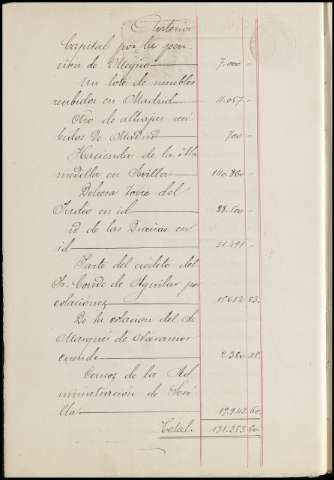 Anterior
Capital por la pen
sion de Utiquia 7.000 -
Un lote de muebles
recibidos en Madrid 11.057 -
Otro de alhajas reci
bidos de Madrid 700 -
Hacienda de la illa
medilla en Sevilla
Dehesa Torre del
Judio en id
id de las Dueñas en
id 21.491 -
Parte del credito del
Sr. Conde de Aguilar por
estaciones 15.612 53.
De la estacion del Sr
Marqués de Navamor
cuende 2.380 18.
Censos de la Ad
ministracion de Sevi
lla 19.943 60
Total 191.253 60